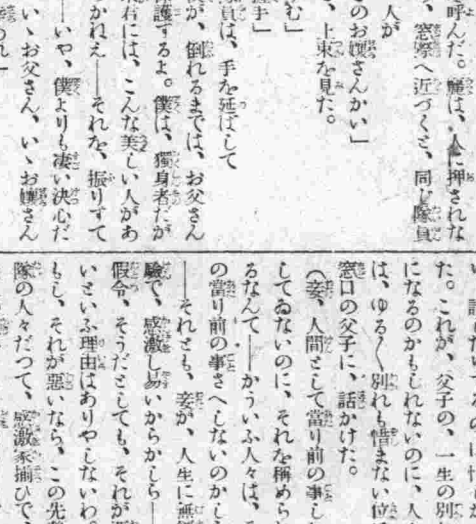 呼んだ。麗は、人に押されな
、窓際へ近づくと、同じ隊員
人が
のお孃さんかい」
、上東を見た。
む」
手」
員は、手を延ばして
が、倒れるまでは、お父さん
護するよ。僕は、獨身者だが
君には、こんな美しい人があ
かねえ――それを、振りすて
――いや、僕よりも凄い決心だ
いゝお父さん、いゝお孃さん
た。これが、父子の、一生の別
になるのかもしれないのに、人
は、ゆる〱別れも惜まない位
窓口の父子に、話かけた。
(妾、人間として當り前の事し
してゐないのに、それを稱めら
るなんて――かういふ人々は、
の當り前の事さへしないのかし
――それとも、妾が、人生に無
驗で、感激し易いからかしら――
假令、そうだとしても、それが
いといふ理由はありやしないわ。
もし、それが惡いなら、この先
隊の人々だつて、感激家揃ひで、